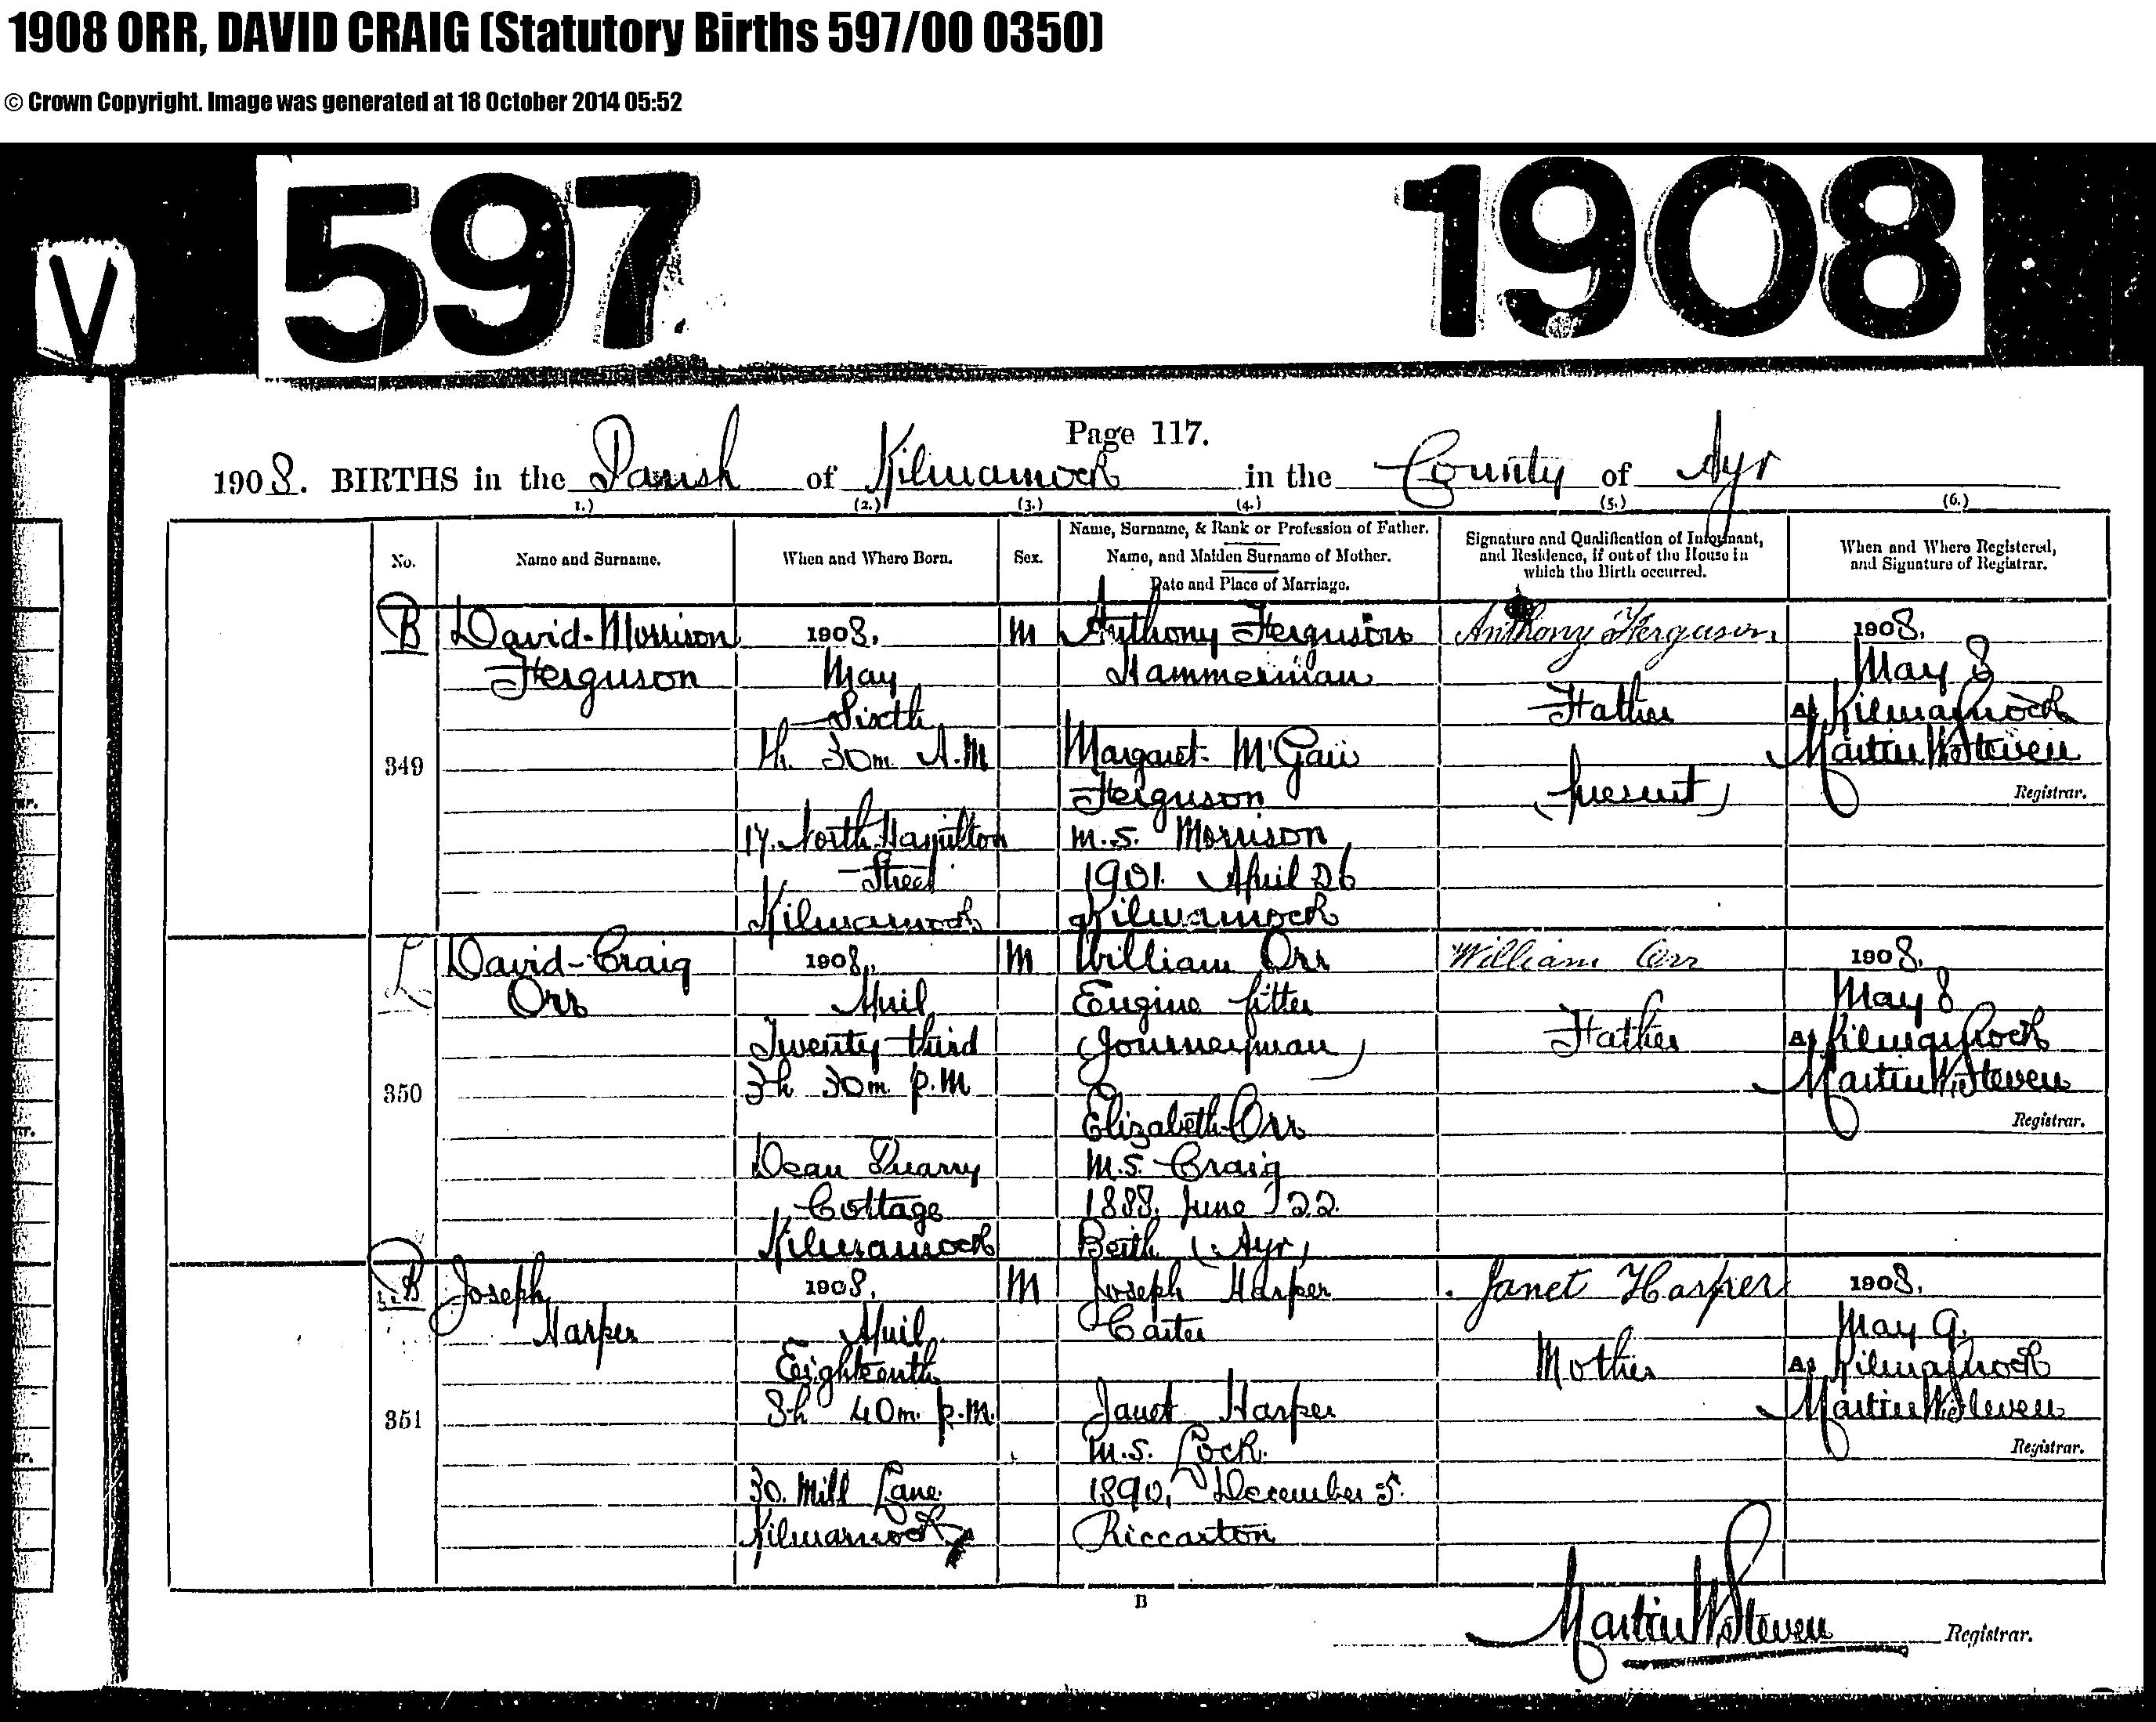 1908 ORR, DAVID CRAIG (Statutory Births 597/00 0350)
© Crown Copyright. Image was generated at 18 October 2014 05:52
V
597 1908
Page 117.
1908. BIRTHS in the Parish of Kilmarnock in the County of Ayr
1.) (2.) (3.) (4.) (5.) (6.)
No.
Name and Surname.
When and Where Born.
Sex.
Name, Surname, & Rank or Profession of Father.
Name, and Maiden Surname of Mother.
Date and Place of Marriage.
Signature and Qualification of Informant,
and Residence, if out of the House in
which the Birth occurred.
When and Where Registered,
and Signature of Registrar.
B
349
David Morrison
Ferguson
1908.
May
Sixth
1h. 30m. A.M
17. North Hamilton
Street
Kilmarnock
M
Anthony Ferguson
Hammerman
Margaret M'Gaw
Ferguson
m.s. Morrison
1901. April 26
Kilmarnock
Anthony Ferguson
Father
(present)
1908.
May 8
At Kilmarnock
Martin W. Steven
Registrar.
L
350
David Craig
Orr
1908.
April
Twenty third
3h 30m. p.m
Dean Quarry
Cottage
Kilmarnock
M
William Orr
Engine fitter
(Journeyman)
Elizabeth Orr
m.s. Craig
1888. June 22.
Beith (Ayr)
William Orr
Father
1908.
May 8
At Kilmarnock
Martin W. Steven
Registrar.
B
351
Joseph
Harper
1908.
April
Eighteenth
8h 40m. p.m.
30. Mill Lane.
Kilmarnock
M
Joseph Harper
Carter
Janet Harper
m.s. Lock.
1890, December 5.
Riccarton
Janet Harper
Mother
1908.
May 9.
At Kilmarnock
Martin W. Steven
Registrar.
B
Martin W. Steven Registrar.